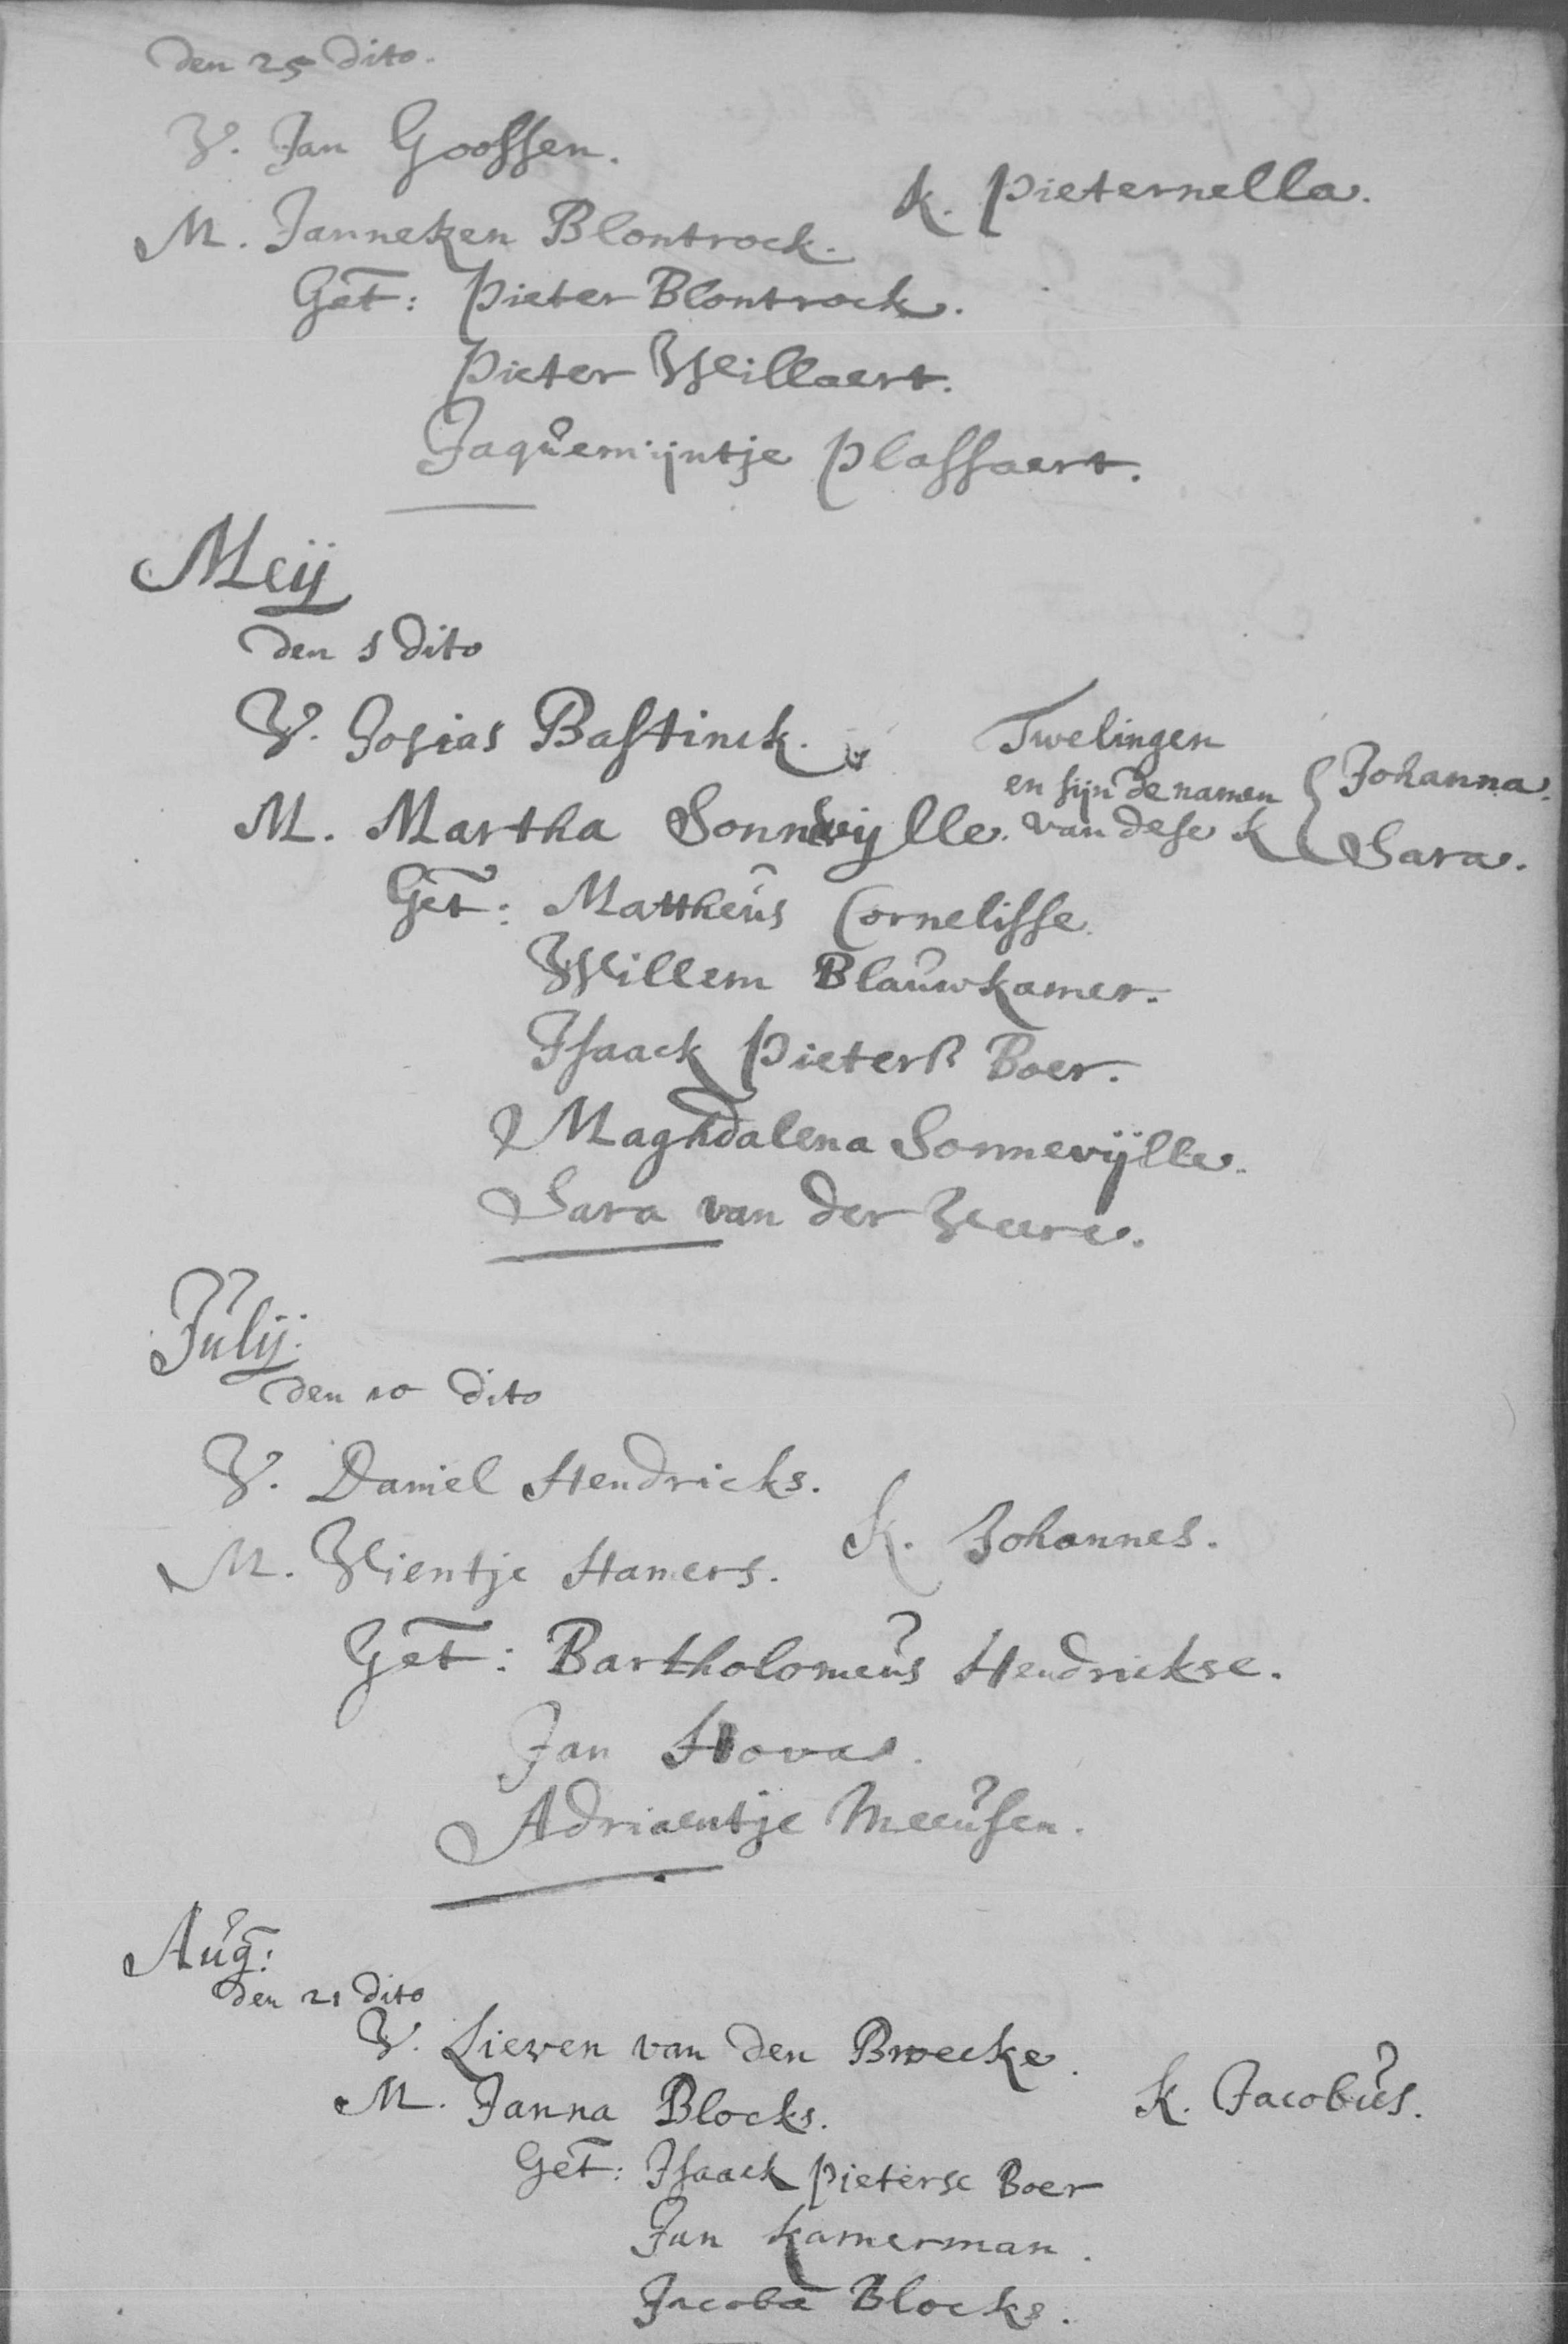 den 25 dito.
V. Jan Goossen.
K. Pieternella.
M. Janneken Blontrock.
Get: Pieter Blontrock.
Pieter Willaert.
Jaquemijntje Plassaert.
Meij
den 1 dito
V. Josias Bastinck.
M. Martha Sonnevijlle.
Twelingen
en sijn de namen
van dese K
Johanna.
Sara.
Get: Mattheus Cornelisse.
Willem Blauwkamer.
Isaack Pieterß Boer.
Maghdalena Sonnevijlle.
Sara van der Weere.
Julij.
den 10 dito
V. Daniel Hendricks.
M. Wientje Hamers.
K. Johannes.
Get: Bartholomeus Hendrickse.
Jan Hovas.
Adriaentje Meeusen.
Aug:
den 21 dito
V. Lieven van den Broecke.
M. Janna Blocks.
K. Jacobus.
Get: Isaack Pieterse Boer
Jan Kamerman.
Jacoba Blocks.